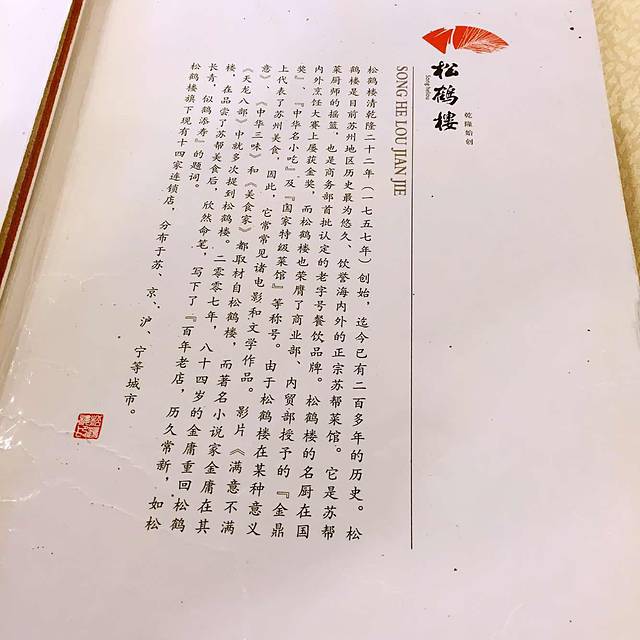 松鹤楼
Song helou
乾隆始创
SONG HE LOU JIAN JIE
松鹤楼清乾隆二十二年（一七五七年）创始，迄今已有二百多年的历史。松
鹤楼是目前苏州地区历史最为悠久、饮誉海内外的正宗苏帮菜馆。它是苏帮
菜厨师的摇篮，也是商务部首批认定的老字号餐饮品牌。松鹤楼的名厨在国
内外烹饪大赛上屡获金奖，而松鹤楼也荣膺了商业部、内贸部授予的『金鼎
奖』、『中华名小吃』及『国家特级菜馆』等称号。由于松鹤楼在某种意义
上代表了苏州美食，因此，它常常见诸电影和文学作品。影片《满意不满
意》、《中华三味》和《美食家》都取材自松鹤楼，而著名小说家金庸在其
《天龙八部》中就多次提到松鹤楼。二〇〇七年，八十四岁的金庸重回松鹤
楼，在品尝了苏帮美食后，欣然命笔，写下了『百年老店，历久常新，如松
长青，似鹤添寿』的题词。
松鹤楼旗下现有十四家连锁店，分布于苏、京、沪、宁等城市。